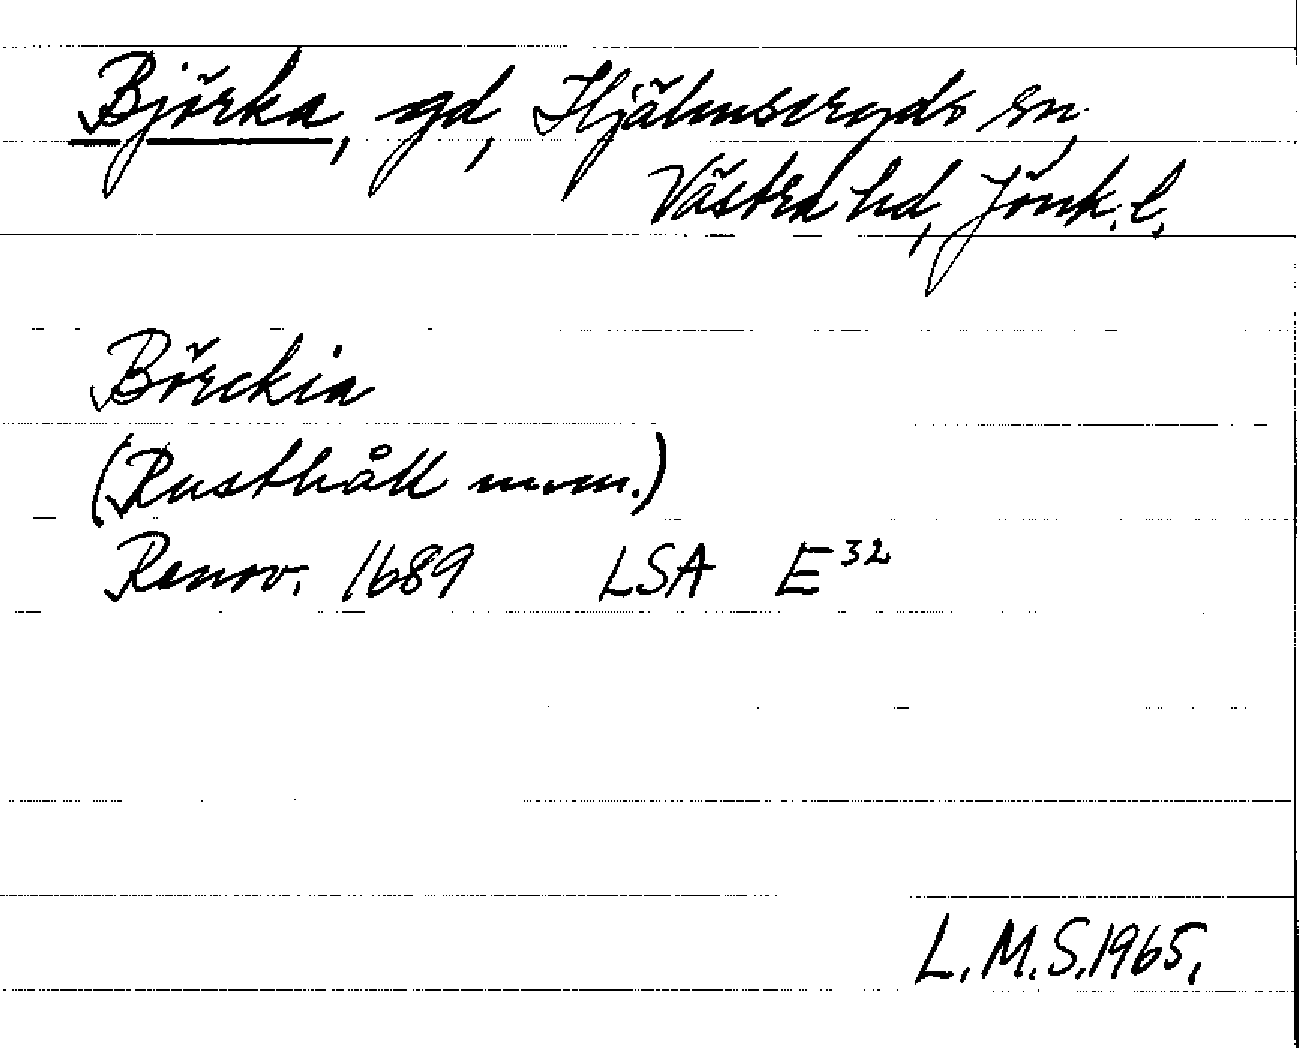 Björka, gd, Hjälmseryds sn,
Västra hd, Jönk. l.
Börckia
(Rusthåll m.m.)
Renov. 1689 LSA E³²
L.M.S. 1965.